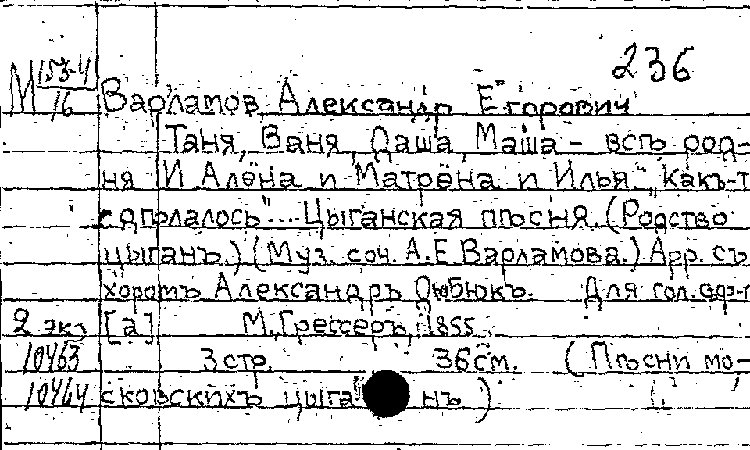 236
М 153-4/16 Варламов Александр Егорович
Таня, Ваня, Даша, Маша - всѣ род-
ня И Алёна и Матрёна и Илья." "Какъ-т
сдѣлалось"... Цыганская пѣсня. (Родство
цыганъ.) (Муз. соч. А.Е. Варламова.) Арр. съ
хоромъ Александръ Дюбюкъ. Для гол. с ф-п
2 экз [а] М., Грессеръ, 1855
10463 3 стр. 36 см. (Пѣсни мо-
10464 сковскихъ цыганъ)